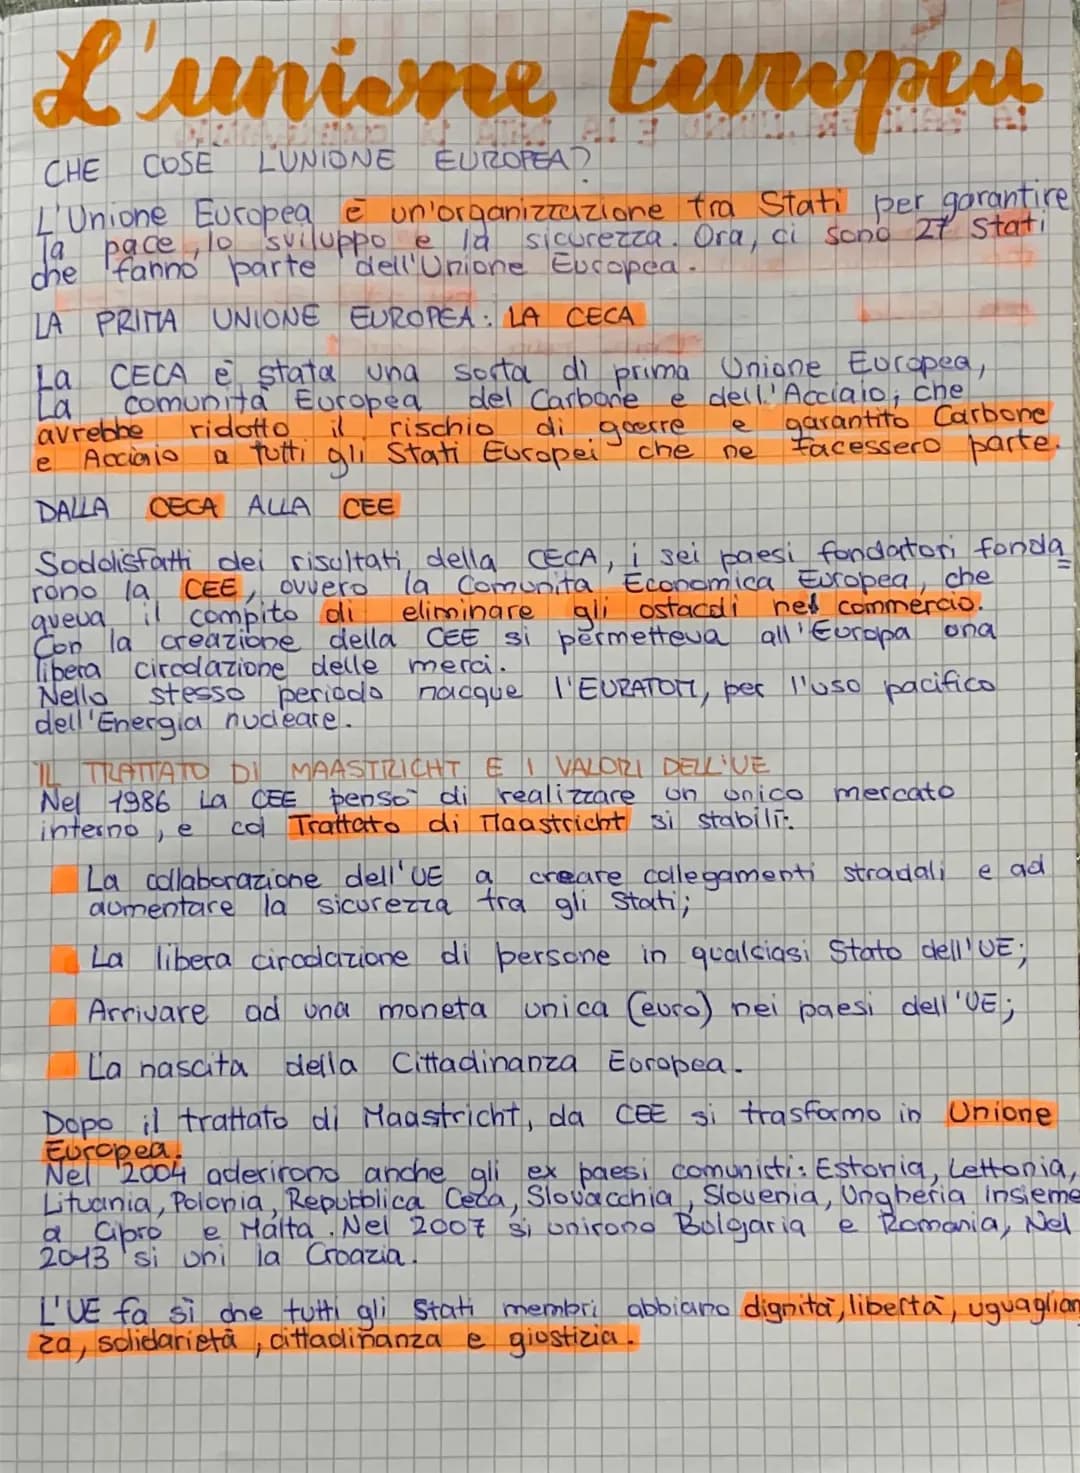 L'unione Europea
CHE COSE LUNIONE EUROPEA?
L'Unione Europea è un'organizzazione tra Stati per garantire
la pace, lo sviluppo e la sicurezza. Ora, ci sono 27 Stati
che fanno parte dell'Unione Europea.
LA PRIMA UNIONE EUROPEA: LA CECA
La CECA è stata una sorta di prima Unione Europea,
La comunità Europea del Carbone e dell'Acciaio, che
avrebbe ridotto il rischio di guerre e garantito Carbone
e Acciaio a tutti gli Stati Europei che ne facessero parte.
DALLA CECA ALLA CEE
Soddisfatti dei risultati della CECA, i sei paesi fondatori fonda
rono la CEE, ovvero la Comunità Economica Europea, che
aveva il compito di eliminare gli ostacoli nel commercio.
Con la creazione della CEE si permetteva all'Europa una
libera circolazione delle merci.
Nello stesso periodo nacque l'EURATOM, per l'uso pacifico
dell'Energia nucleare.
IL TRATTATO DI MAASTRICHT E I VALORI DELL'UE
Nel 1986 La CEE pensò di realizzare un unico mercato
interno, e col Trattato di Maastricht si stabilì:
La collaborazione dell'UE a creare collegamenti stradali e ad
aumentare la sicurezza tra gli Stati;
La libera circolazione di persone in qualsiasi Stato dell'UE;
Arrivare ad una moneta unica (euro) nei paesi dell'UE;
La nascita della Cittadinanza Europea.
Dopo il trattato di Maastricht, da CEE si trasformo in Unione
Europea.
Nel 2004 aderirono anche gli ex paesi comunisti: Estonia, Lettonia,
Lituania, Polonia, Repubblica Ceca, Slovacchia, Slovenia, Ungheria insieme
a Cipro e Malta. Nel 2007 si unirono Bulgaria e Romania, Nel
2013 si unì la Croazia.
L'UE fa sì che tutti gli Stati membri abbiano dignità, libertà, uguaglian
za, solidarietà, cittadinanza e giustizia.